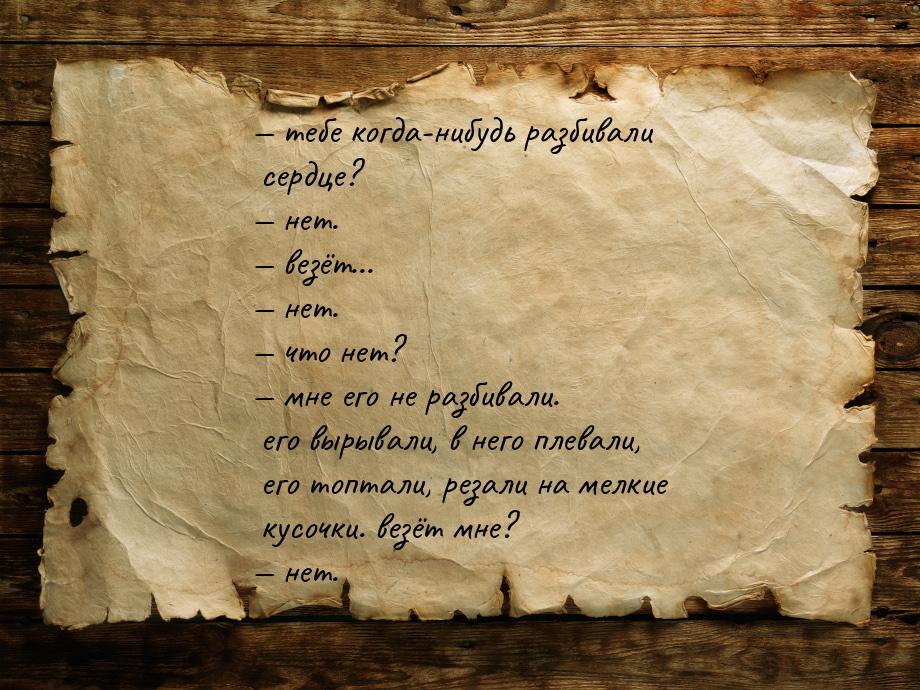 — тебе когда-нибудь разбивали
сердце?
— нет.
— везёт...
— нет.
— что нет?
— мне его не разбивали.
его вырывали, в него плевали,
его топтали, резали на мелкие
кусочки. везёт мне?
— нет.